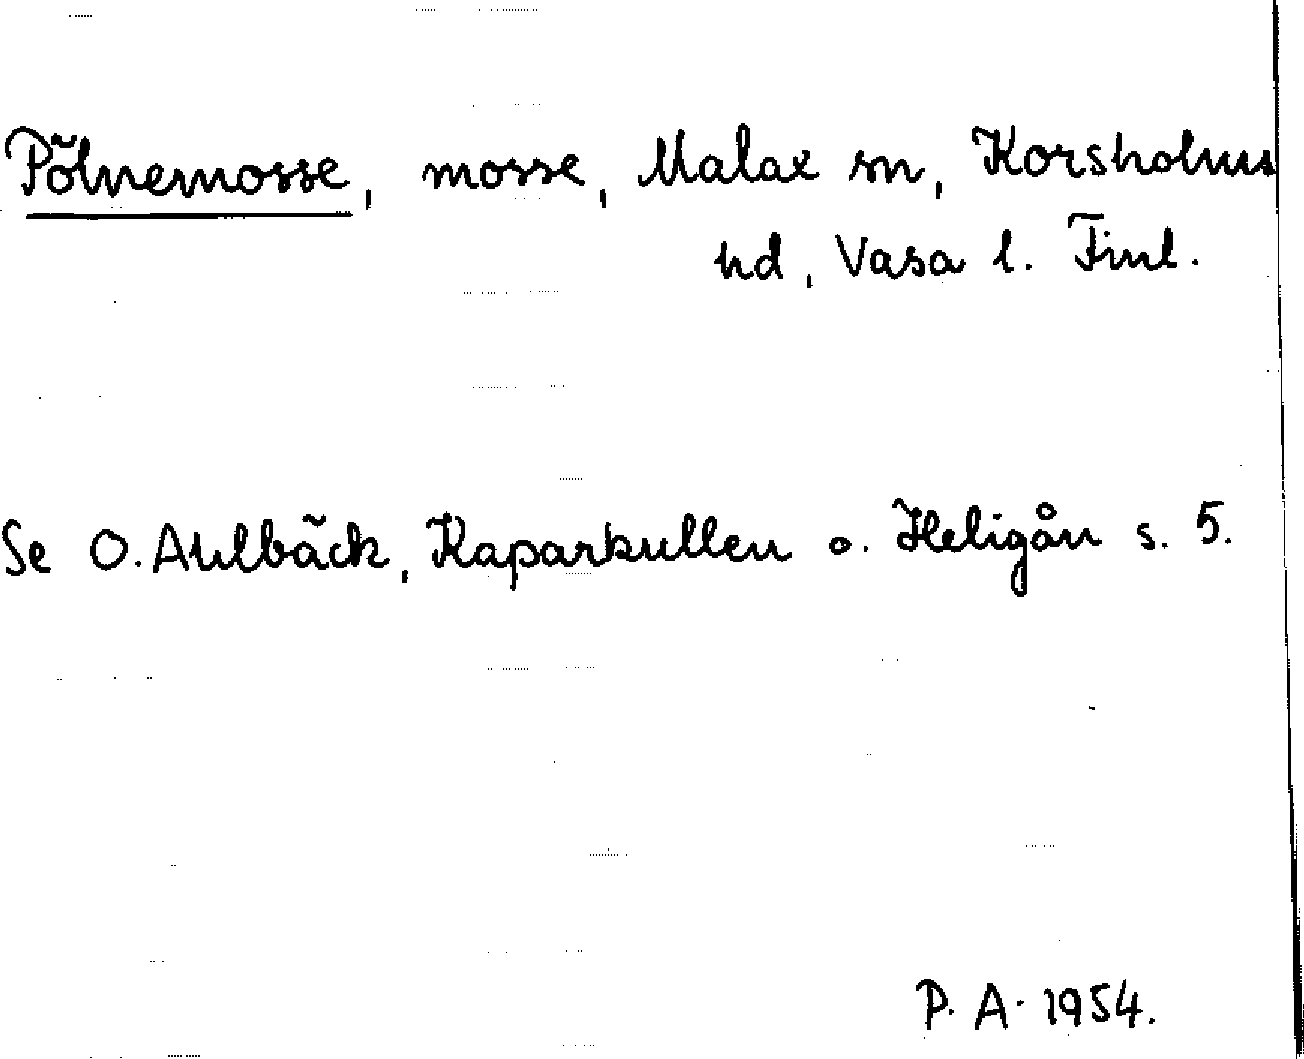 Pölnemosse, mosse, Malax sn, Korsholms
hd, Vasa l. Finl.
Se O. Ahlbäck, Kaparkullen o. Heligån s. 5.
P. A. 1954.